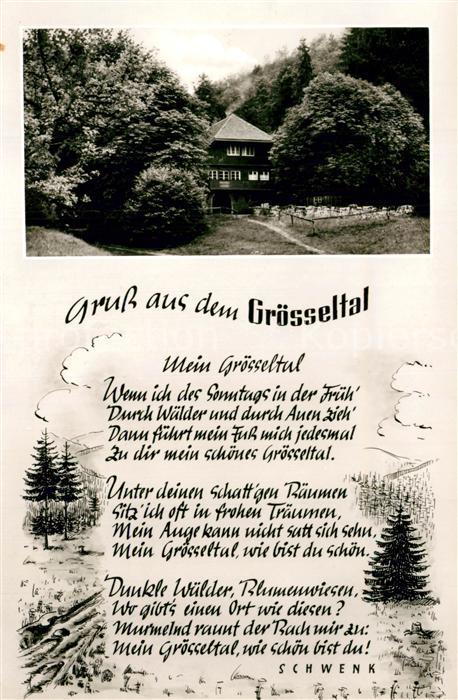 Gruß aus dem Grösseltal
Mein Grösseltal
Wenn ich des Sonntags in der Früh'
Durch Wälder und durch Auen zieh'
Dann führt mein Fuß mich jedesmal
Zu dir mein schönes Grösseltal.
Unter deinen schatt'gen Bäumen
Sitz' ich oft in frohen Träumen,
Mein Auge kann nicht satt sich sehn,
Mein Grösseltal, wie bist du schön.
Dunkle Wälder, Blumenwiesen,
Wo gibt's einen Ort wie diesen?
Murmelnd raunt der Bach mir zu:
Mein Grösseltal, wie schön bist du!
SCHWENK